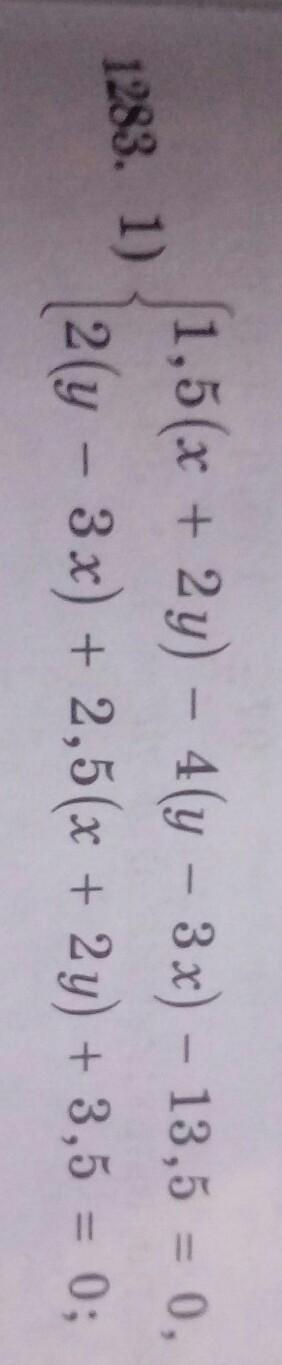 1283. 1) { 1,5(x + 2y) − 4(y − 3x) − 13,5 = 0,
2(y − 3x) + 2,5(x + 2y) + 3,5 = 0;